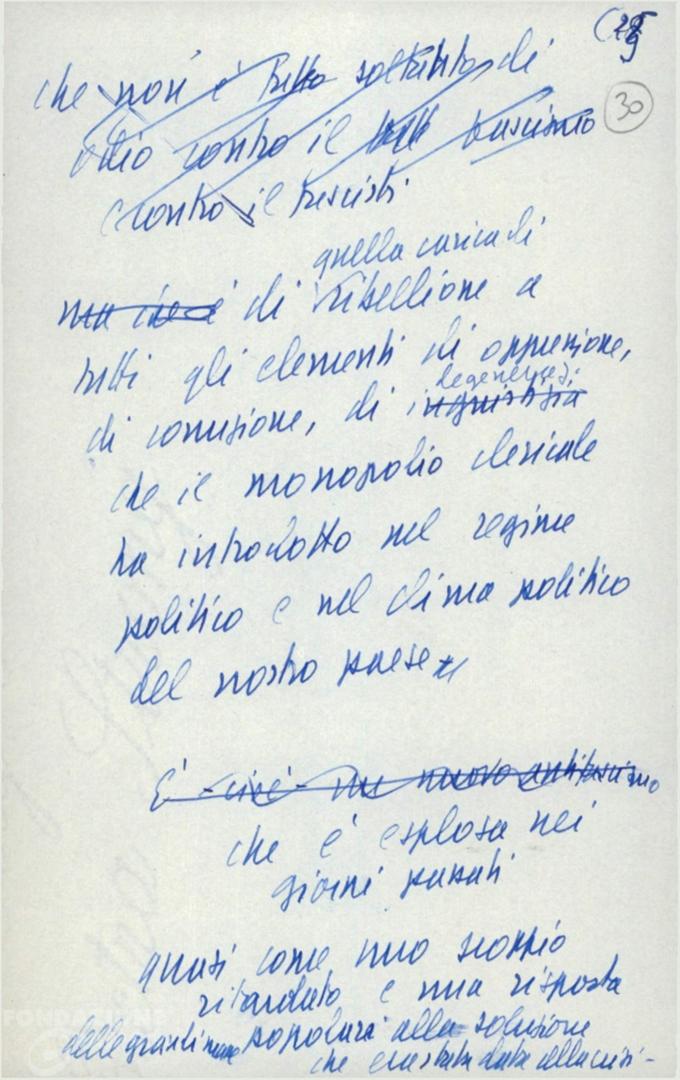 (29
30
che non è tutto soltanto di
odio contro il fascismo
e contro i fascisti
quella carica di
ma cioè è di ribellione a
tutti gli elementi di oppressione,
degenerazi
di corruzione, di ingiustizia
che il monopolio clericale
ha introdotto nel regime
politico e nel clima politico
del nostro paese
È - cioè - un nuovo antifascismo
che è esplosa nei
giorni passati
quasi come uno scoppio
ritardato e una risposta
delle grandi masse popolari alla soluzione
che era stata data alla crisi -
FONDAZIONE